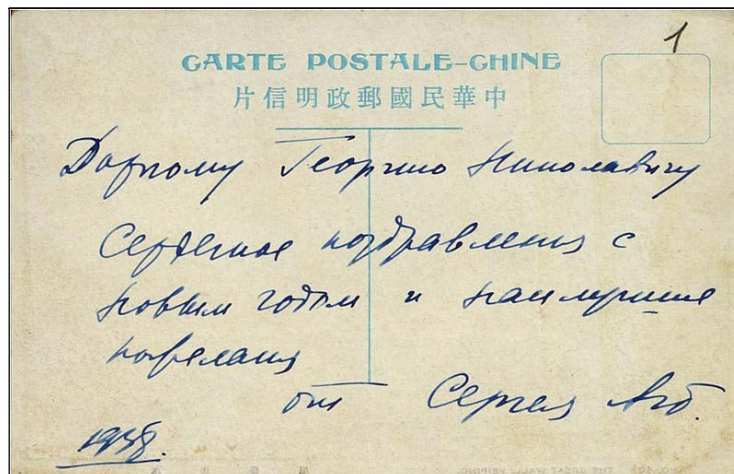 1
CARTE POSTALE-CHINE
中華民國郵政明信片
Дорогому Георгию Николаевичу
Сердечные поздравления с
новым годом и наилучшие
пожелания
от Сергея
1938.